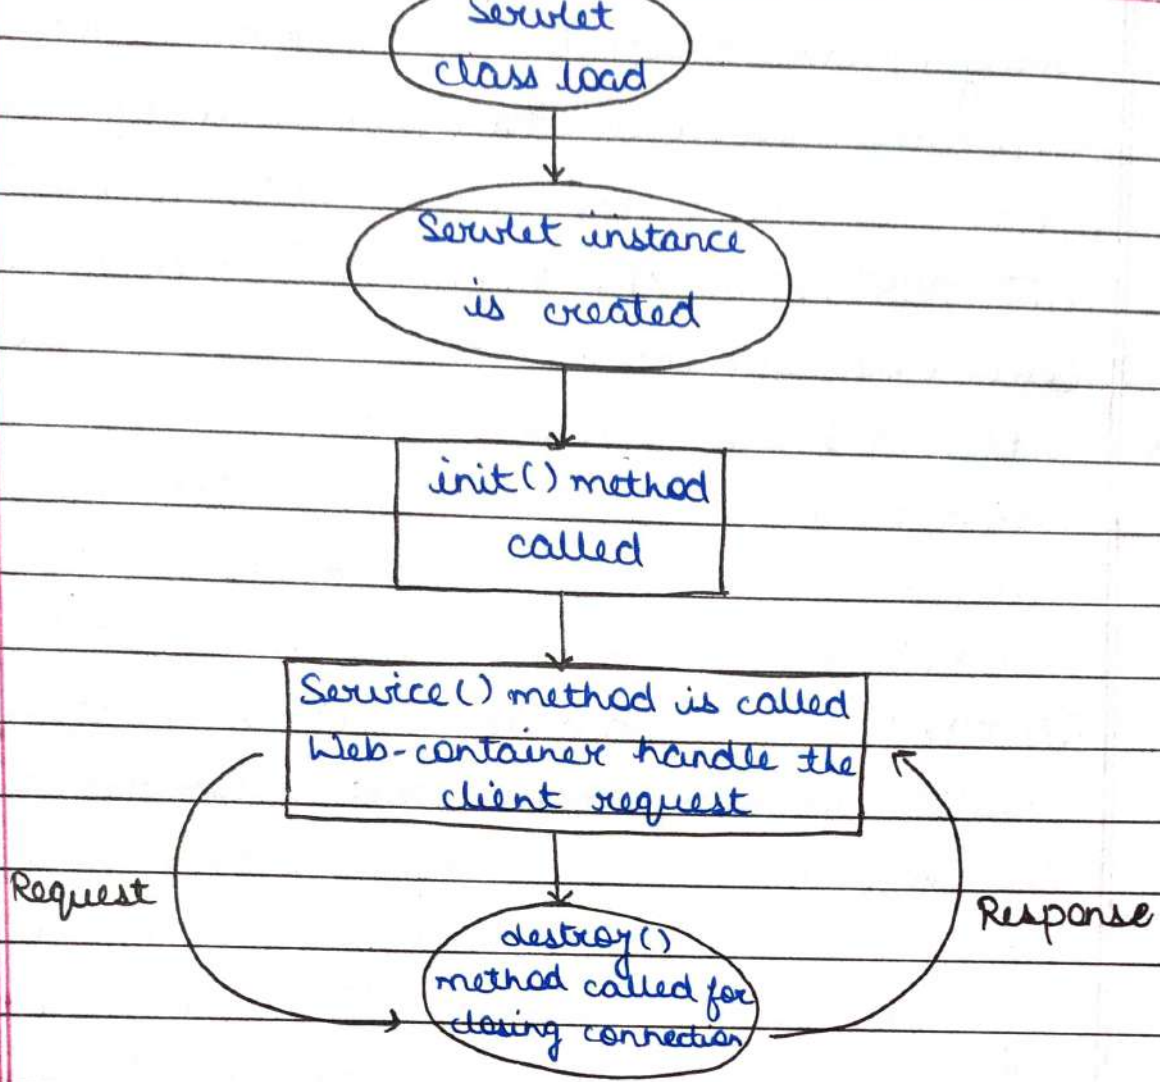 Servlet
class load
Servlet instance
is created
init() method
called
Service() method is called
Web-container handle the
client request
Request
Response
destroy()
method called for
closing connection